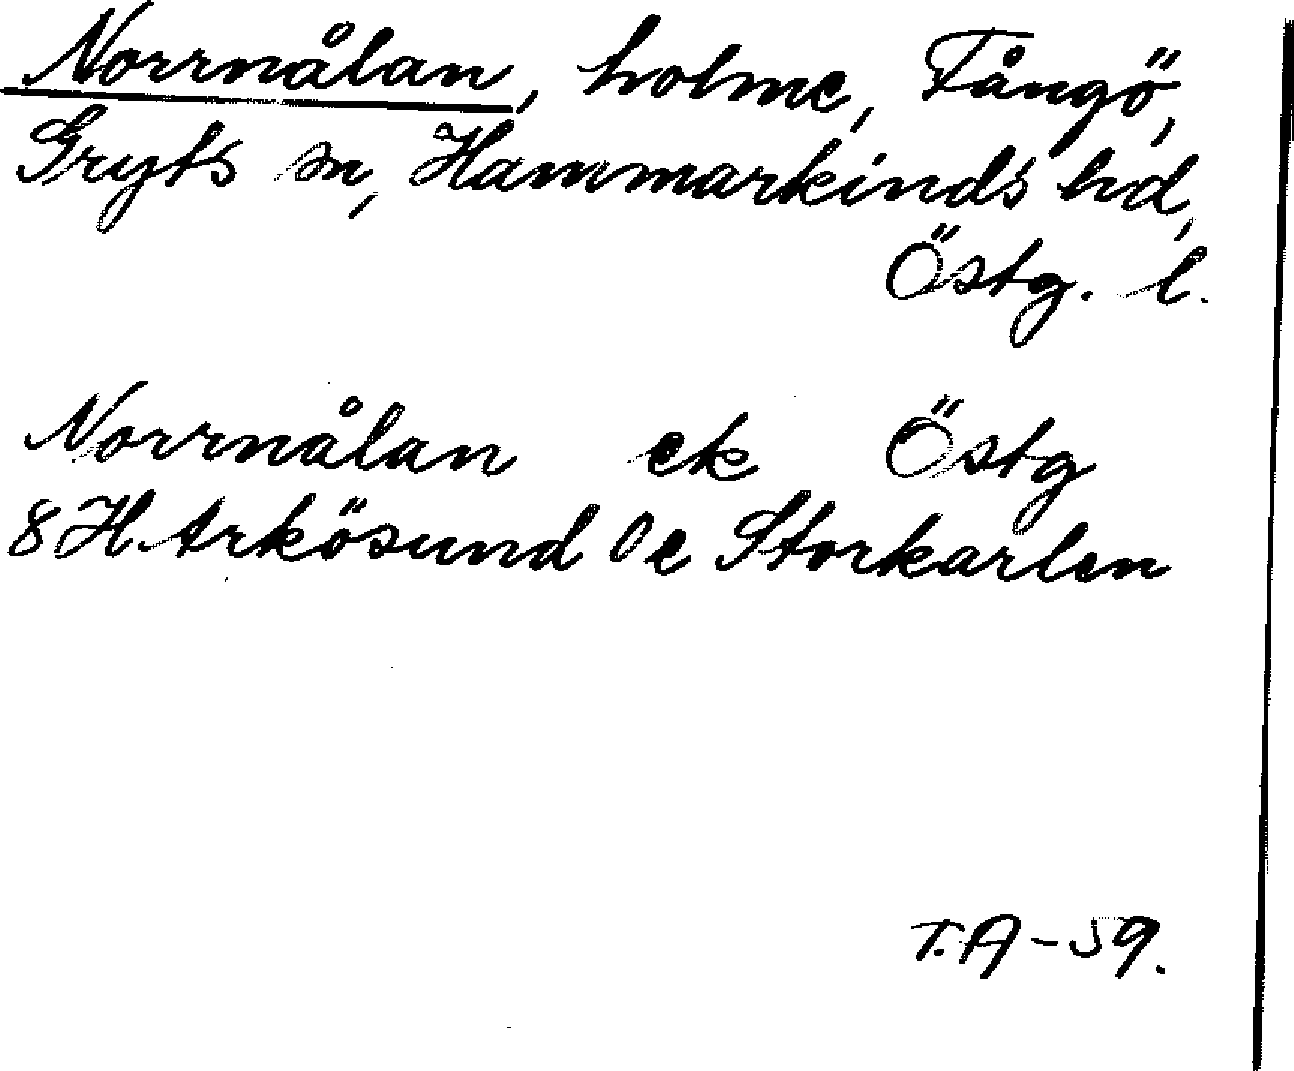 Norrnålan, holme, Fångö,
Gryts sn, Hammarkinds hd,
Östg. l.
Norrnålan ek Östg
8 H Arkösund Oc Storkarlen
T.A-59.